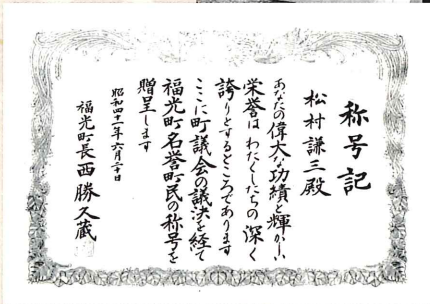 称号記
松村謙三殿
あなたの偉大な功績と輝かしい
栄誉はわたくしたちの深く
誇りとするところであります
ここに町議会の議決を経て
福光町名誉町民の称号を
贈呈します
昭和四十一年六月二十日
福光町長西勝久蔵